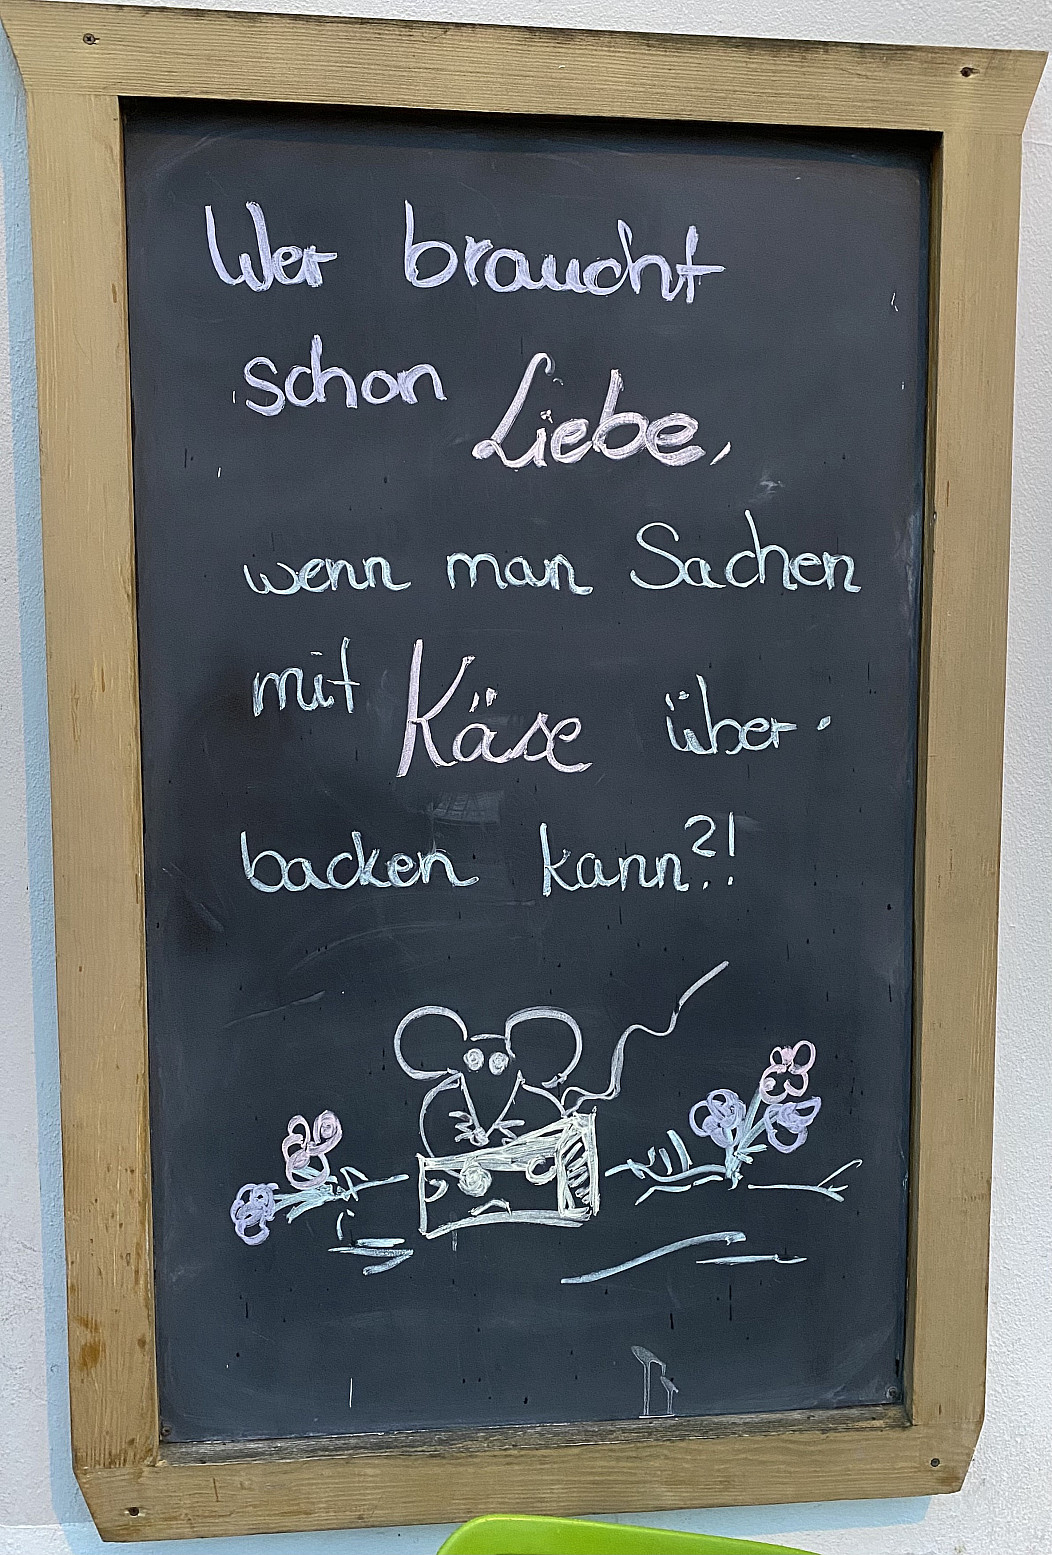 Wer braucht
schon Liebe,
wenn man Sachen
mit Käse über-
backen kann?!